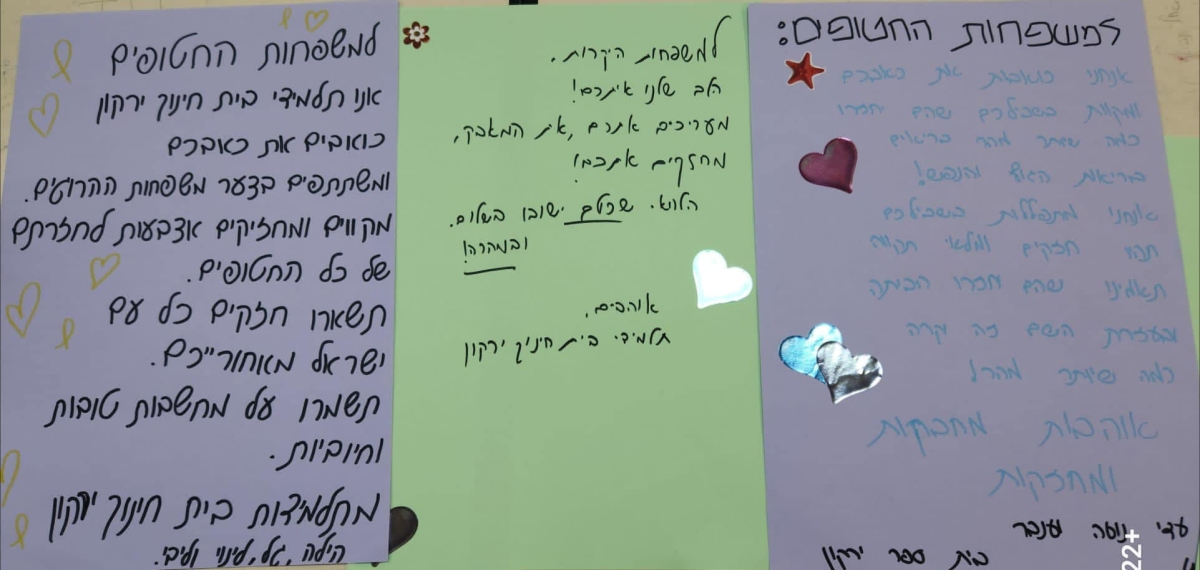 למשפחות החטופים:
אנחנו כואבות את כאבכם
ומקוות בשבילכם שהם יחזרו
כמה שיותר מהר בריאים
בריאות הגוף והנפש!
אנחנו מתפללות בשבילכם
תהיו חזקים ומלאי תקווה
תאמינו שהם יחזרו הביתה
ובעזרת השם זה יקרה
כמה שיותר מהר!
אוהבות מחבקות
ומחזקות
עדי נוטה וענבר
בית ספר ירקון
22+
למשפחות היקרות.
הלב שלנו איתכם!
מעריכים אתכם, את המאבק,
מחזקים אתכם!
הלוואי שכולם ישובו בשלום.
ובמהרה!
אוהבים,
תלמידי בית חינוך ירקון
למשפחות החטופים
אנו תלמידי בית חינוך ירקון
כואבים את כאבכם
ומשתתפים בצער משפחות ההרוגים.
מקווים ומחזיקים אצבעות לחזרתם
של כל החטופים.
תשארו חזקים כל עם
ישראל מאחורייכם.
תשמרו על מחשבות טובות
וחיוביות.
מתלמידות בית חינוך ירקון
הילה, גל, לינוי וליבי.